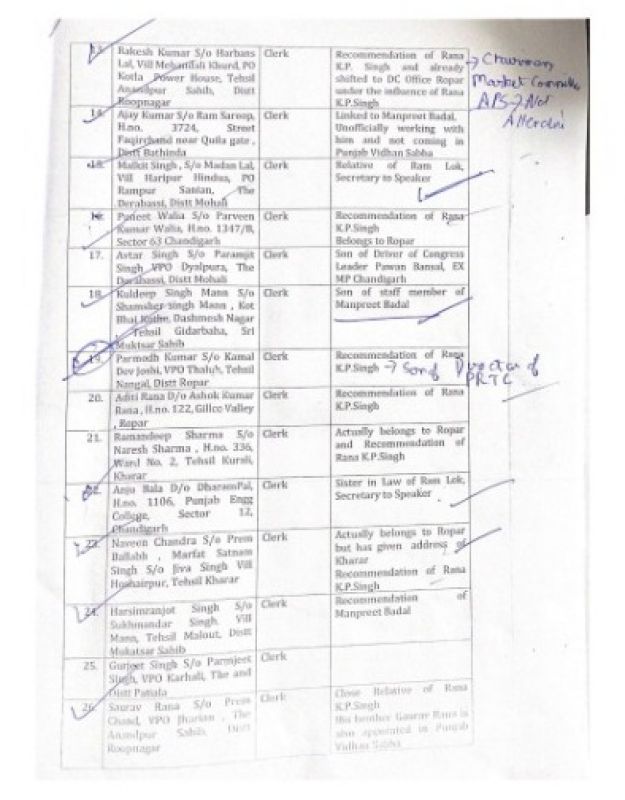 13. Rakesh Kumar S/o Harbans Clerk Recommendation of Rana
Lal, Vill Mehandali Khurd, PO K.P. Singh and already
Kotla Power House, Tehsil shifted to DC Office Ropar
Anandpur Sahib, Distt under the influence of Rana
Roopnagar K.P.Singh
→ Chairman
Market Committee
APS → Not
14. Ajay Kumar S/o Ram Saroop, Clerk Linked to Manpreet Badal,
H.no. 3724, Street Unofficially working with
Faqirchand near Quila gate , him and not coming in
Distt Bathinda Punjab Vidhan Sabha
15. Malkit Singh , S/o Madan Lal, Clerk Relative of Ram Lok,
Vill Haripur Hindua, PO Secretary to Speaker
Rampur Sanian, The
Derabassi, Distt Mohali
16. Puneet Walia S/o Parveen Clerk Recommendation of Rana
Kumar Walia, H.no. 1347/B, K.P.Singh
Sector 63 Chandigarh Belongs to Ropar
17. Avtar Singh S/o Paramjit Clerk Son of Driver of Congress
Singh VPO Dyalpura, The Leader Pawan Bansal, EX
Derabassi, Distt Mohali MP Chandigarh
18. Kuldeep Singh Mann S/o Clerk Son of staff member of
Shamsher singh Mann , Kot Manpreet Badal
Bhai Kothe, Dashmesh Nagar
Tehsil Gidarbaha, Sri
Muktsar Sahib
19. Parmodh Kumar S/o Kamal Clerk Recommendation of Rana
Dev Joshi, VPO Thaluh, Tehsil K.P.Singh → Son of Director of
Nangal, Distt Ropar PRTC
20. Aditi Rana D/o Ashok Kumar Clerk Recommendation of Rana
Rana , H.no. 122, Gillco Valley K.P.Singh
, Ropar
21. Ramandeep Sharma S/o Clerk Actually belongs to Ropar
Naresh Sharma , H.no. 336, and Recommendation of
Ward No. 2, Tehsil Kurali, Rana K.P.Singh
Kharar
22. Anju Bala D/o DharamPal, Clerk Sister in Law of Ram Lok,
H.no. 1106, Punjab Engg Secretary to Speaker
College, Sector 12,
Chandigarh
23. Naveen Chandra S/o Prem Clerk Actually belongs to Ropar
Ballabh , Marfat Satnam but has given address of
Singh S/o Jiva Singh Vill Kharar
Hoshairpur, Tehsil Kharar Recommendation of Rana
K.P.Singh
24. Harsimranjot Singh S/o Clerk Recommendation of
Sukhmandar Singh. Vill Manpreet Badal
Mann, Tehsil Malout, Distt
Mukatsar Sahib
25. Gurjeet Singh S/o Parmjeet Clerk
Singh, VPO Karhali, The and
Distt Patiala
26. Saurav Rana S/o Prem Clerk Close Relative of Rana
Chand, VPO Jharian , The K.P.Singh
Anandpur Sahib, Distt His brother Gaurav Rana is
Roopnagar also appointed in Punjab
Vidhan Sabha